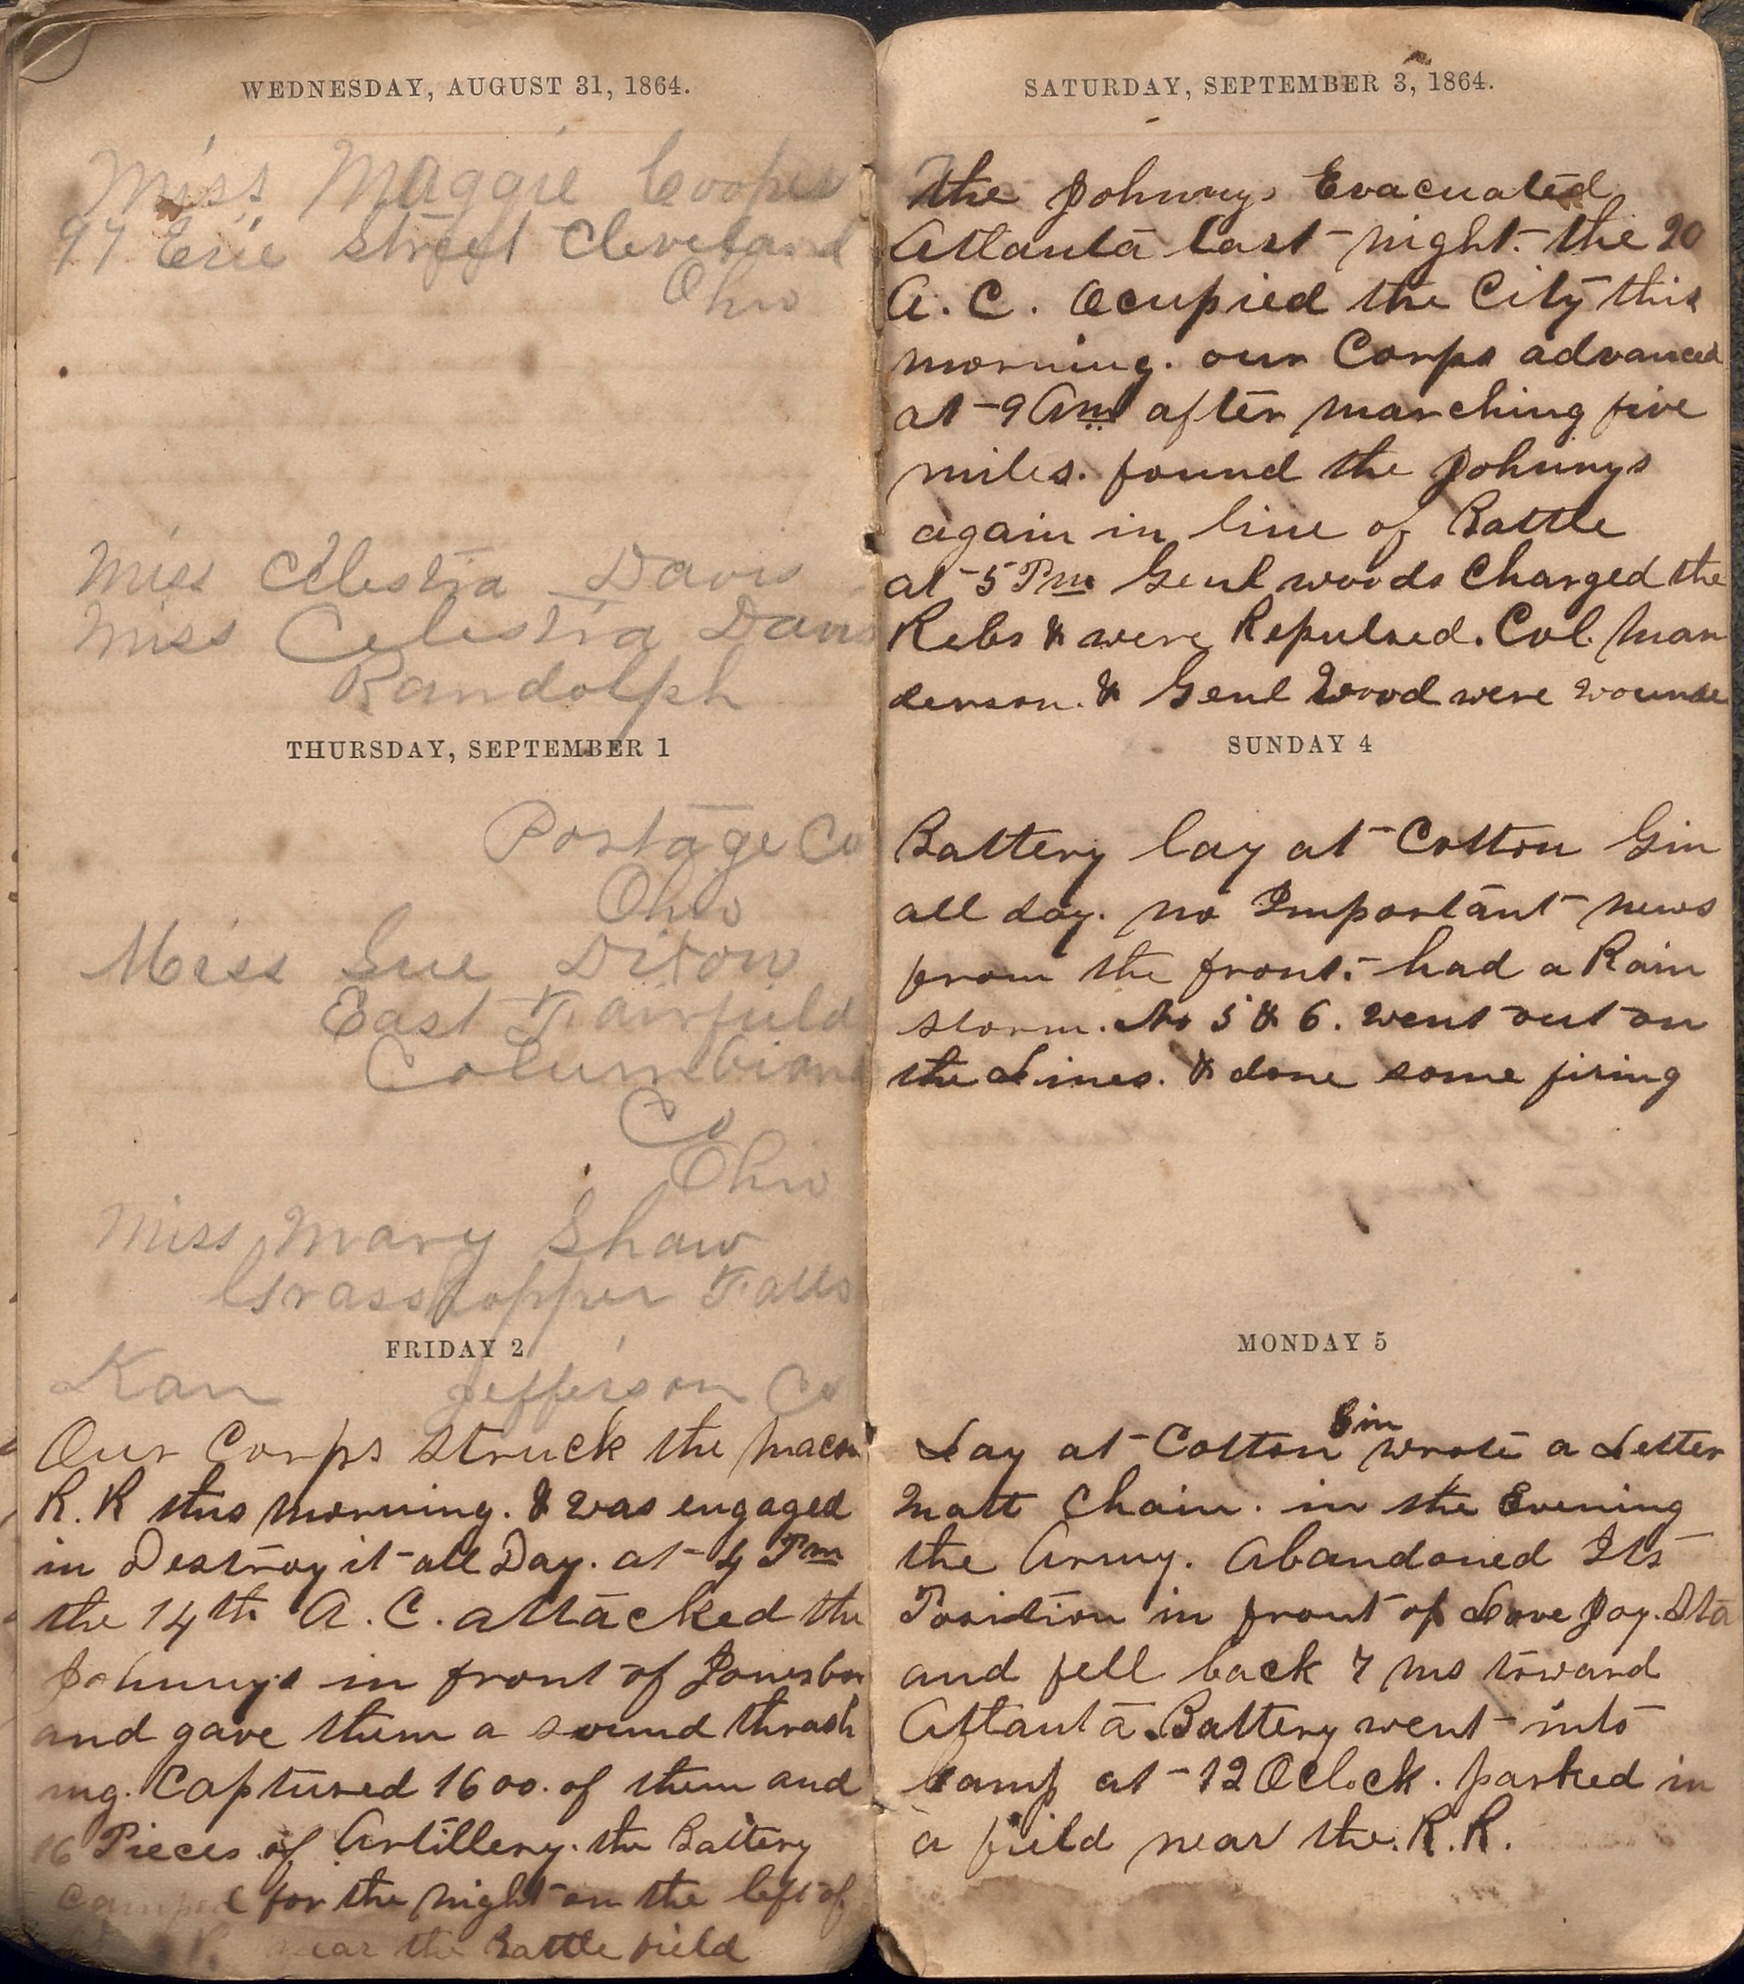 WEDNESDAY, AUGUST 31, 1864.
Miss Maggie Cooper
97 Erie Street Cleveland
Ohio
Miss Celestia Davis
Miss Celestia Davis
Randolph
THURSDAY, SEPTEMBER 1
Portage Co
Ohio
Miss Sue Dixon
East Fairfield
Columbiana
Co
Ohio
Miss Mary Shaw
Grasshopper Falls
FRIDAY 2
Kan Jefferson Co
Our Corps struck the Macon
R. R this morning. & was engaged
in Destroy it all Day. at 4 Pm
the 14th A. C. attacked the
Johnnys in front of Jonesboro
and gave them a sound thrash
ing. Captured 1600. of them and
16 Pieces of Artillery. the Battery
Camped for the night on the left of
R. near the Battle field
SATURDAY, SEPTEMBER 3, 1864.
The Johnnys Evacuated
Atlanta last night. the 20
A. C. Ocupied the City this
morning. our Corps advanced
at 9 Am after marching five
miles. found the Johnnys
again in line of Battle
at 5 Pm Genl woods Charged the
Rebs & were Repulsed. Col. Man
derson. & Genl Wood were wounde
SUNDAY 4
Battery lay at Cotton Gin
all day. no Important news
from the front. had a Rain
storm. No 5 & 6. went out on
the Lines. & done some firing
MONDAY 5
Lay at Cotton Gin wrote a Letter
Matt Chain. in the Evening
the Army. Abandoned Its
Position in front of Love Joy. Sta
and fell back 7 ms toward
Atlanta. Battery went into
camp at 12 OClock. parked in
a field near the. R. R.